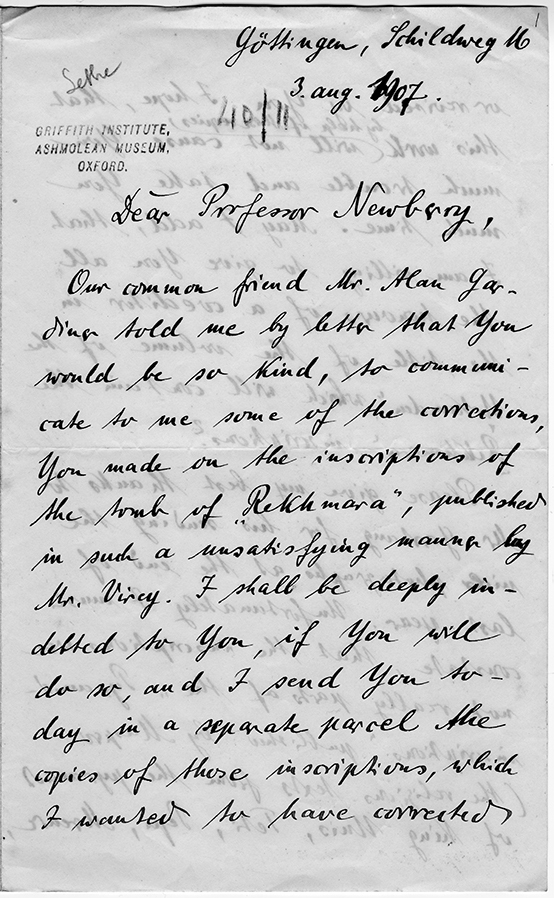 1
Göttingen, Schildweg 16
3. aug. 1907.
Sethe
40/11
GRIFFITH INSTITUTE,
ASHMOLEAN MUSEUM,
OXFORD.
Dear Professor Newberry,
Our common friend Mr. Alan Gar-
diner told me by letter that You
would be so kind, to communi-
cate to me some of the corrections,
You made on the inscriptions of
the tomb of „Rekhmara“, published
in such a unsatisfying manner by
Mr. Virey. I shall be deeply in-
debted to You, if You will
do so, and I send You to-
day in a separate parcel the
copies of those inscriptions, which
I wanted to have corrected